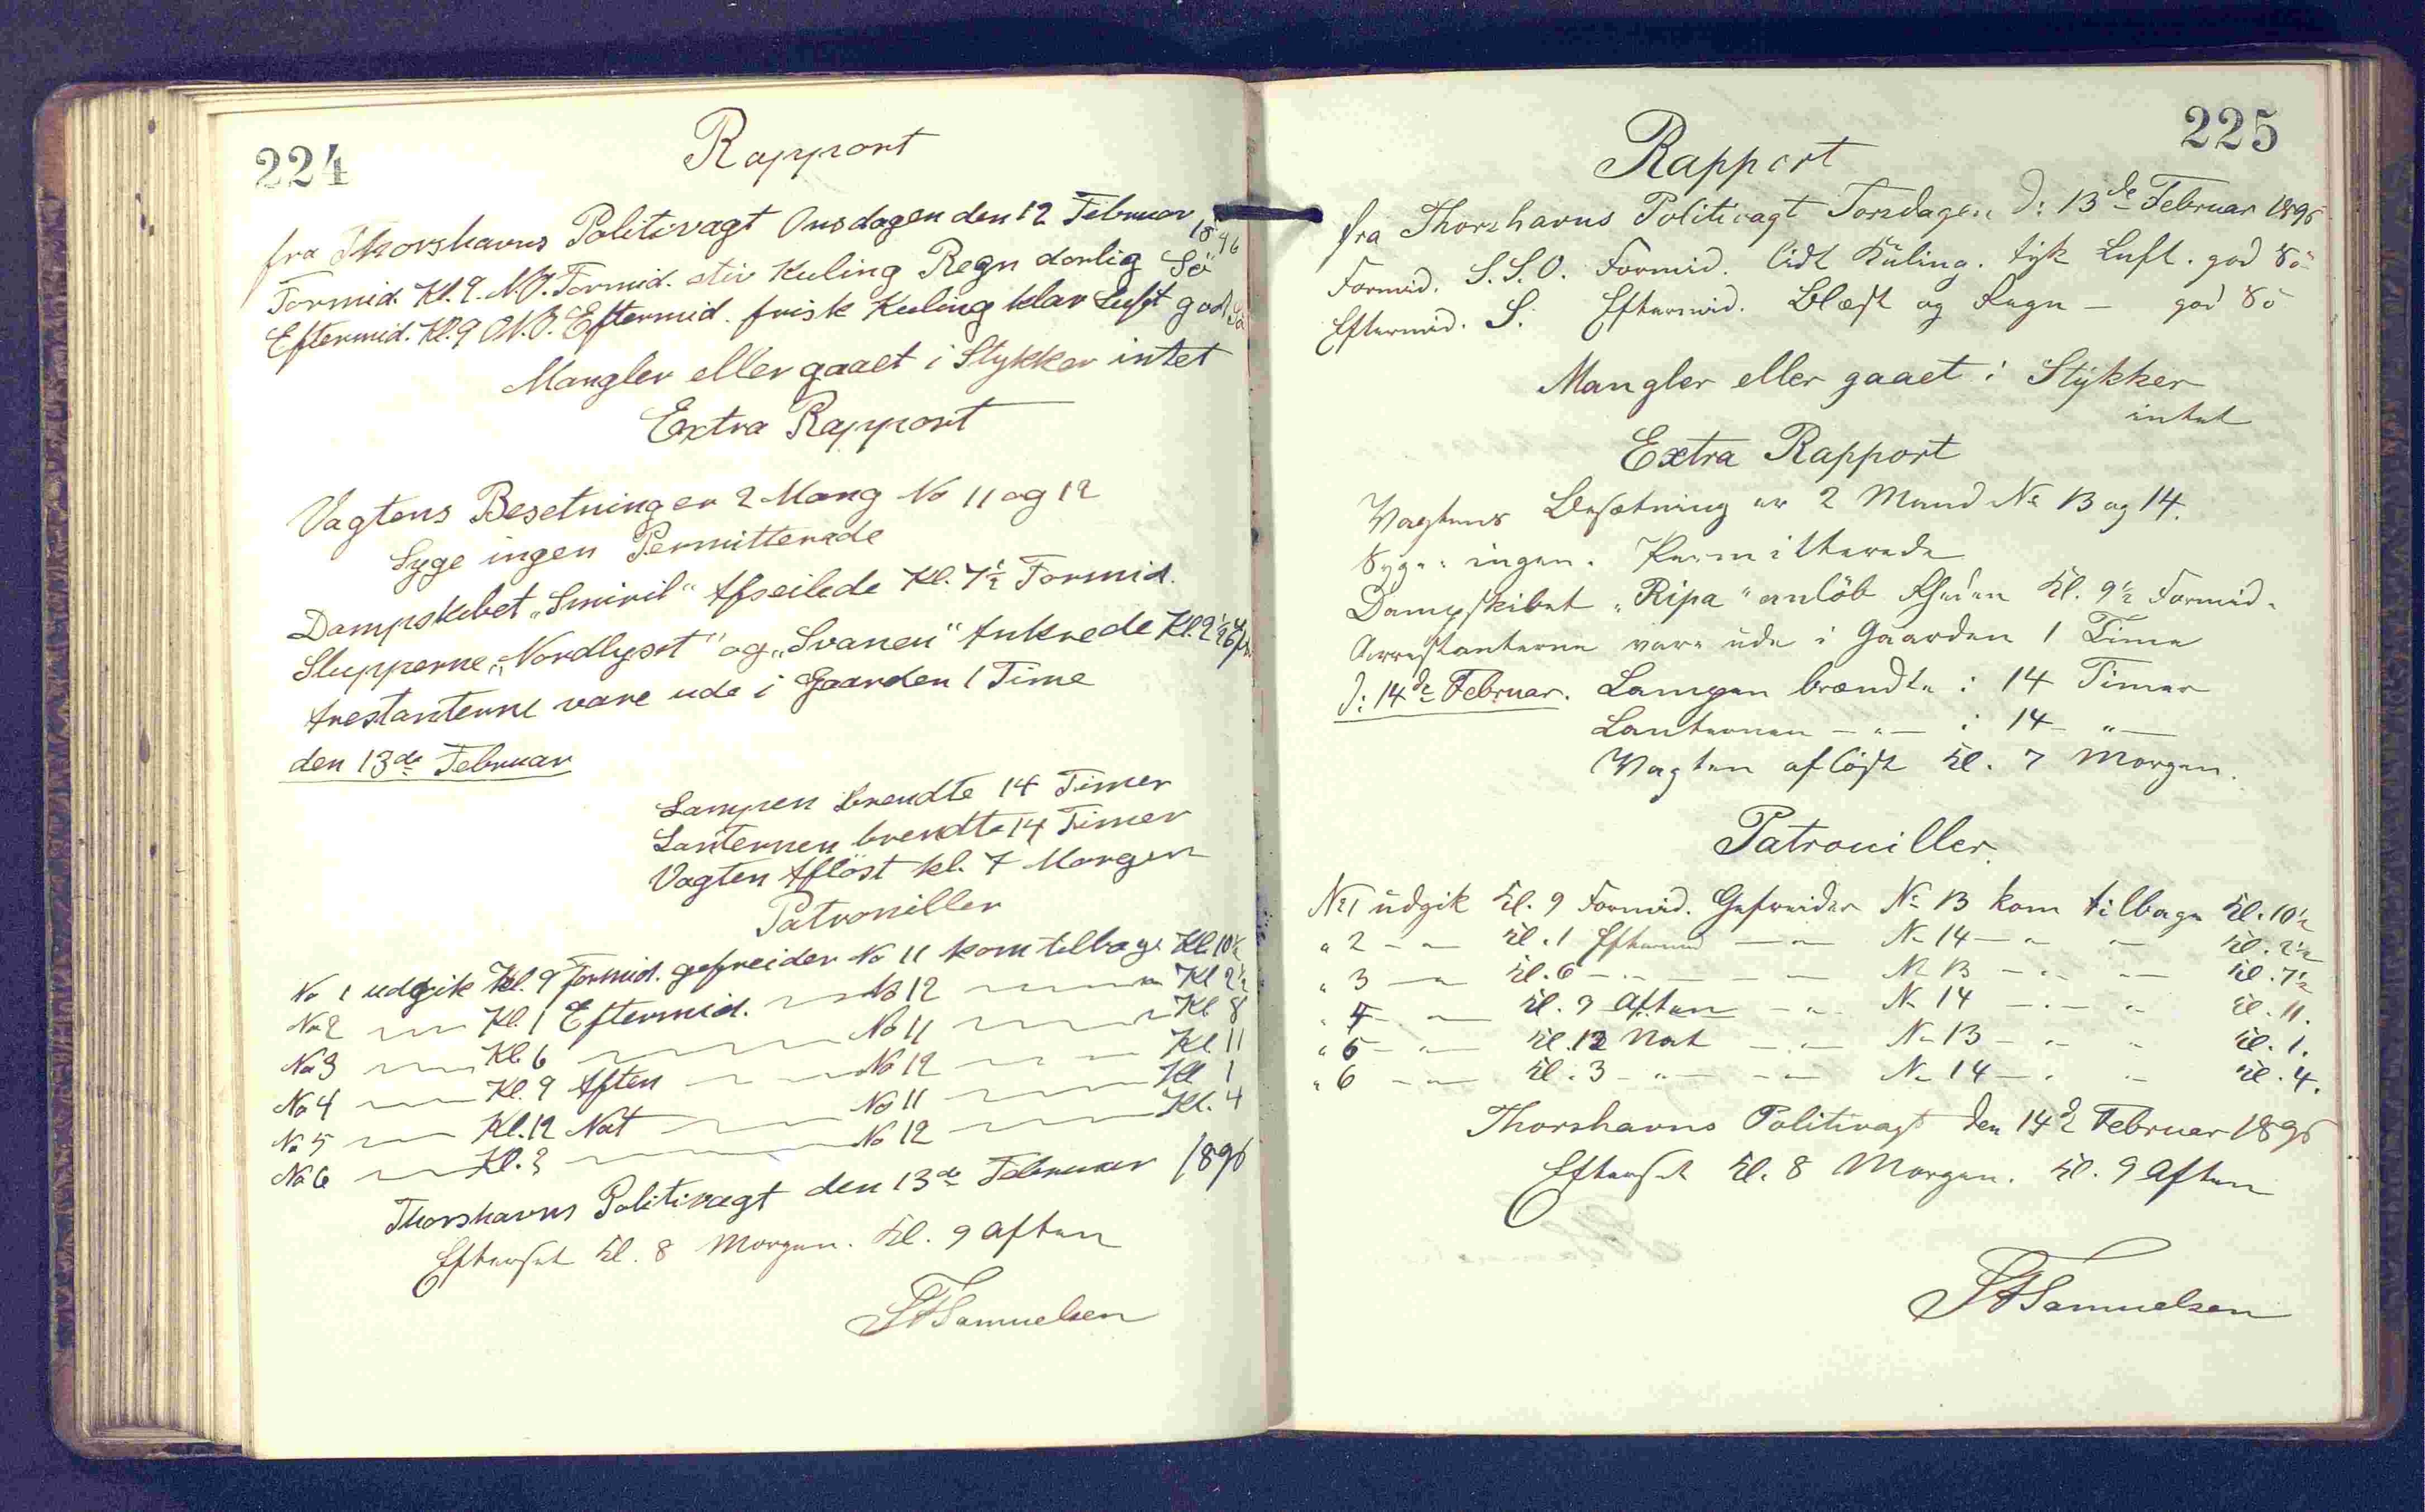 224
Rapport
fra Thorshavns Politivagt Onsdagen den 12 Februar 1896
Formid. Kl. 9. N.O. Formid. stiv Kuling Regn darlig Sö
Eftermid. Kl. 9 N.O. Eftermid. frisk Kuling klar Luft god Sö
Mangler eller gaaet i Stykker intet
Extra Rapport
Vagtens Besetning er 2 Mang No 11 og 12
Syge ingen Permitterede
Dampskibet „Smiril“ Afseilede Kl. 7½ Formid.
Slupperne „Nordlyset“ og „Svanen“ Ankrede Kl. 2½
Arestanterne vare ude i Gaarden 1 Time
den 13de Februar
Lampen brendte 14 Timer
Lanternen brendte 14 Timer
Vagten Aflöst kl. 7 Morgen
Patroniller
No 1 udgik Kl. 9 Formid. gefreider No 11 kom tilbage Kl. 10½
No 2 — Kl. 1 Eftermid. — No 12 — Kl 2½
No 3 — Kl. 6 — No 11 — Kl 8
No 4 — Kl. 9 Aften — No 12 — Kl 11
No 5 — Kl. 12 Nat — No 11 — Kl 1
No 6 — Kl. 3 — No 12 — Kl. 4
Thorshavns Politivagt den 13de Februar 1896
Efterset Kl. 8 Morgen. Kl. 9 Aften
Samuelsen
225
Rapport
fra Thorshavns Politivagt Torsdagen d: 13de Februar 1896
Formid. S.S.O. Formid. lidt Kuling. tyk Luft. god Sö
Eftermid. S. Eftermid. Blæst og Regn — god Sö
Mangler eller gaaet i Stykker
intet
Extra Rapport
Vagtens Besætning er 2 Mand No 13 og 14.
Syge: ingen. Permitterede
Dampskibet „Ripa“ anlöb Rheden Kl. 9½ Formid.
Arrestanterne vare ude i Gaarden 1 Time
d: 14de Februar. Lampen brændte i 14 Timer
Lanternen — „ — i 14 „ —
Vagten aflöst Kl. 7 Morgen.
Patrouiller.
No 1 udgik Kl. 9 Formid. Gefreider No 13 kom tilbage Kl. 10½
„ 2 — „ — Kl. 1 Eftermid — „ — No 14 — „ — Kl. 2½
„ 3 — „ — Kl. 6 — „ — No 13 — „ — Kl. 7½
„ 4 — „ — Kl. 9 Aften — „ — No 14 — „ — Kl. 11.
„ 5 — „ — Kl. 12 Nat — „ — No 13 — „ — Kl. 1.
„ 6 — „ — Kl. 3 — „ — No 14 — „ — Kl. 4.
Thorshavns Politivagt den 14de Februar 1896
Efterset Kl. 8 Morgen. Kl. 9 Aften
Samuelsen